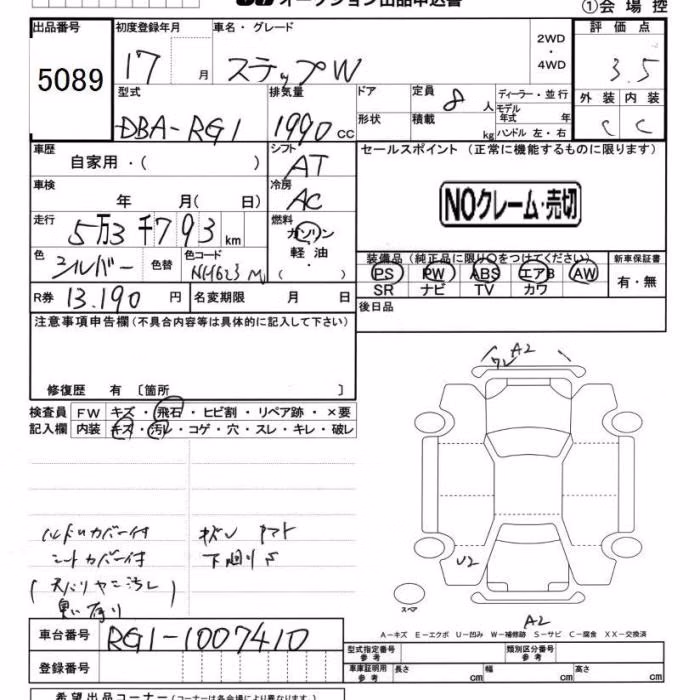 オークション出品申込書
①会場控
出品番号 初度登録年月 車名・グレード 2WD ・ 4WD 評価点
5089 17 月 ステップW 3.5
型式 排気量 ドア 定員 8 人 ディーラー・並行 外装 内装
DBA-RG1 1990 cc 形状 積載 kg モデル年式 年 ハンドル 左・右 C C
車歴 シフト セールスポイント (正常に機能するものに限ります)
自家用・( ) AT
車検 冷房
年 月( 日) AC NOクレーム・売切
走行 燃料
5万3千793 km ガソリン
軽油・( )
色 シルバー 色替 色コード NH623M
装備品(純正品に限り○をつけてください) 新車保証書
PS PW ABS エアB AW 有・無
SR ナビ TV カワ
R券 13.190 円 名変期限 月 日 後日品
注意事項申告欄(不具合内容等は具体的に記入して下さい)
修復歴 有 〔箇所 〕
検査員 FW キズ・飛石・ヒビ割・リペア跡・×要
記入欄 内装 キズ・汚レ・コゲ・穴・スレ・キレ・破レ
A2
ワレ
ハンドルカバー付
シートカバー付 下廻りサ
(天バリヤニ汚レ
臭い有り
U2
スペア
A2
A-キズ E-エクボ U-凹み W-補修跡 S-サビ C-腐食 XX-交換済
車台番号 RG1-1007410
型式指定番号 参考 類別区分番号 参考
登録番号
車庫証明用 参考 長さ cm 幅 cm 高さ cm
希望出品コーナー(コーナーは各会場により異なります。)